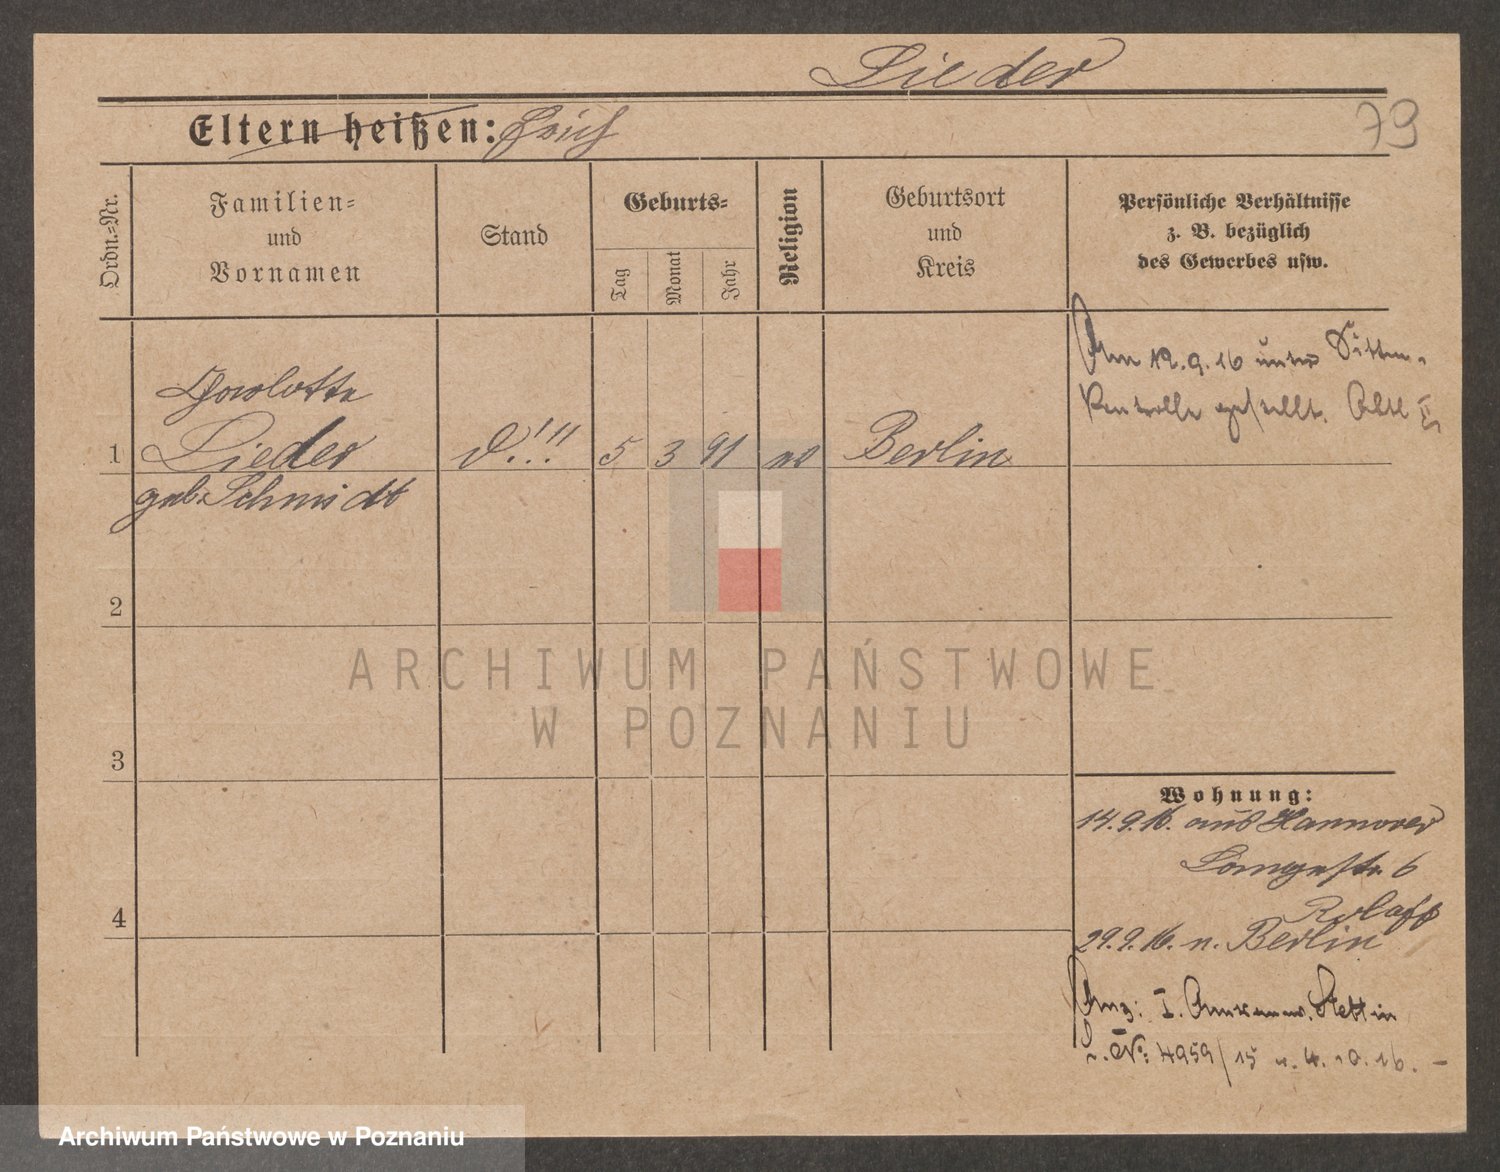 Lieder
79
Eltern heißen: Erich
Ordn.=Nr.
Familien=
und
Vornamen
Stand
Geburts=
Tag
Monat
Jahr
Religion
Geburtsort
und
Kreis
Persönliche Verhältnisse
z. B. bezüglich
des Gewerbes usw.
Am 12.9.16 unter Sitten-
Kontrolle gestellt.
Charlotte
1 Lieder 5 3 91 Berlin
geb. Schmidt
2
3
4
Wohnung:
14.9.16. aus Hannover
Langestr. 6
Roloff
29.9.16. n. Berlin
Anz: I. Stettin
4959/15 v. 4.10.16. -
ARCHIWUM PAŃSTWOWE
W POZNANIU
Archiwum Państwowe w Poznaniu